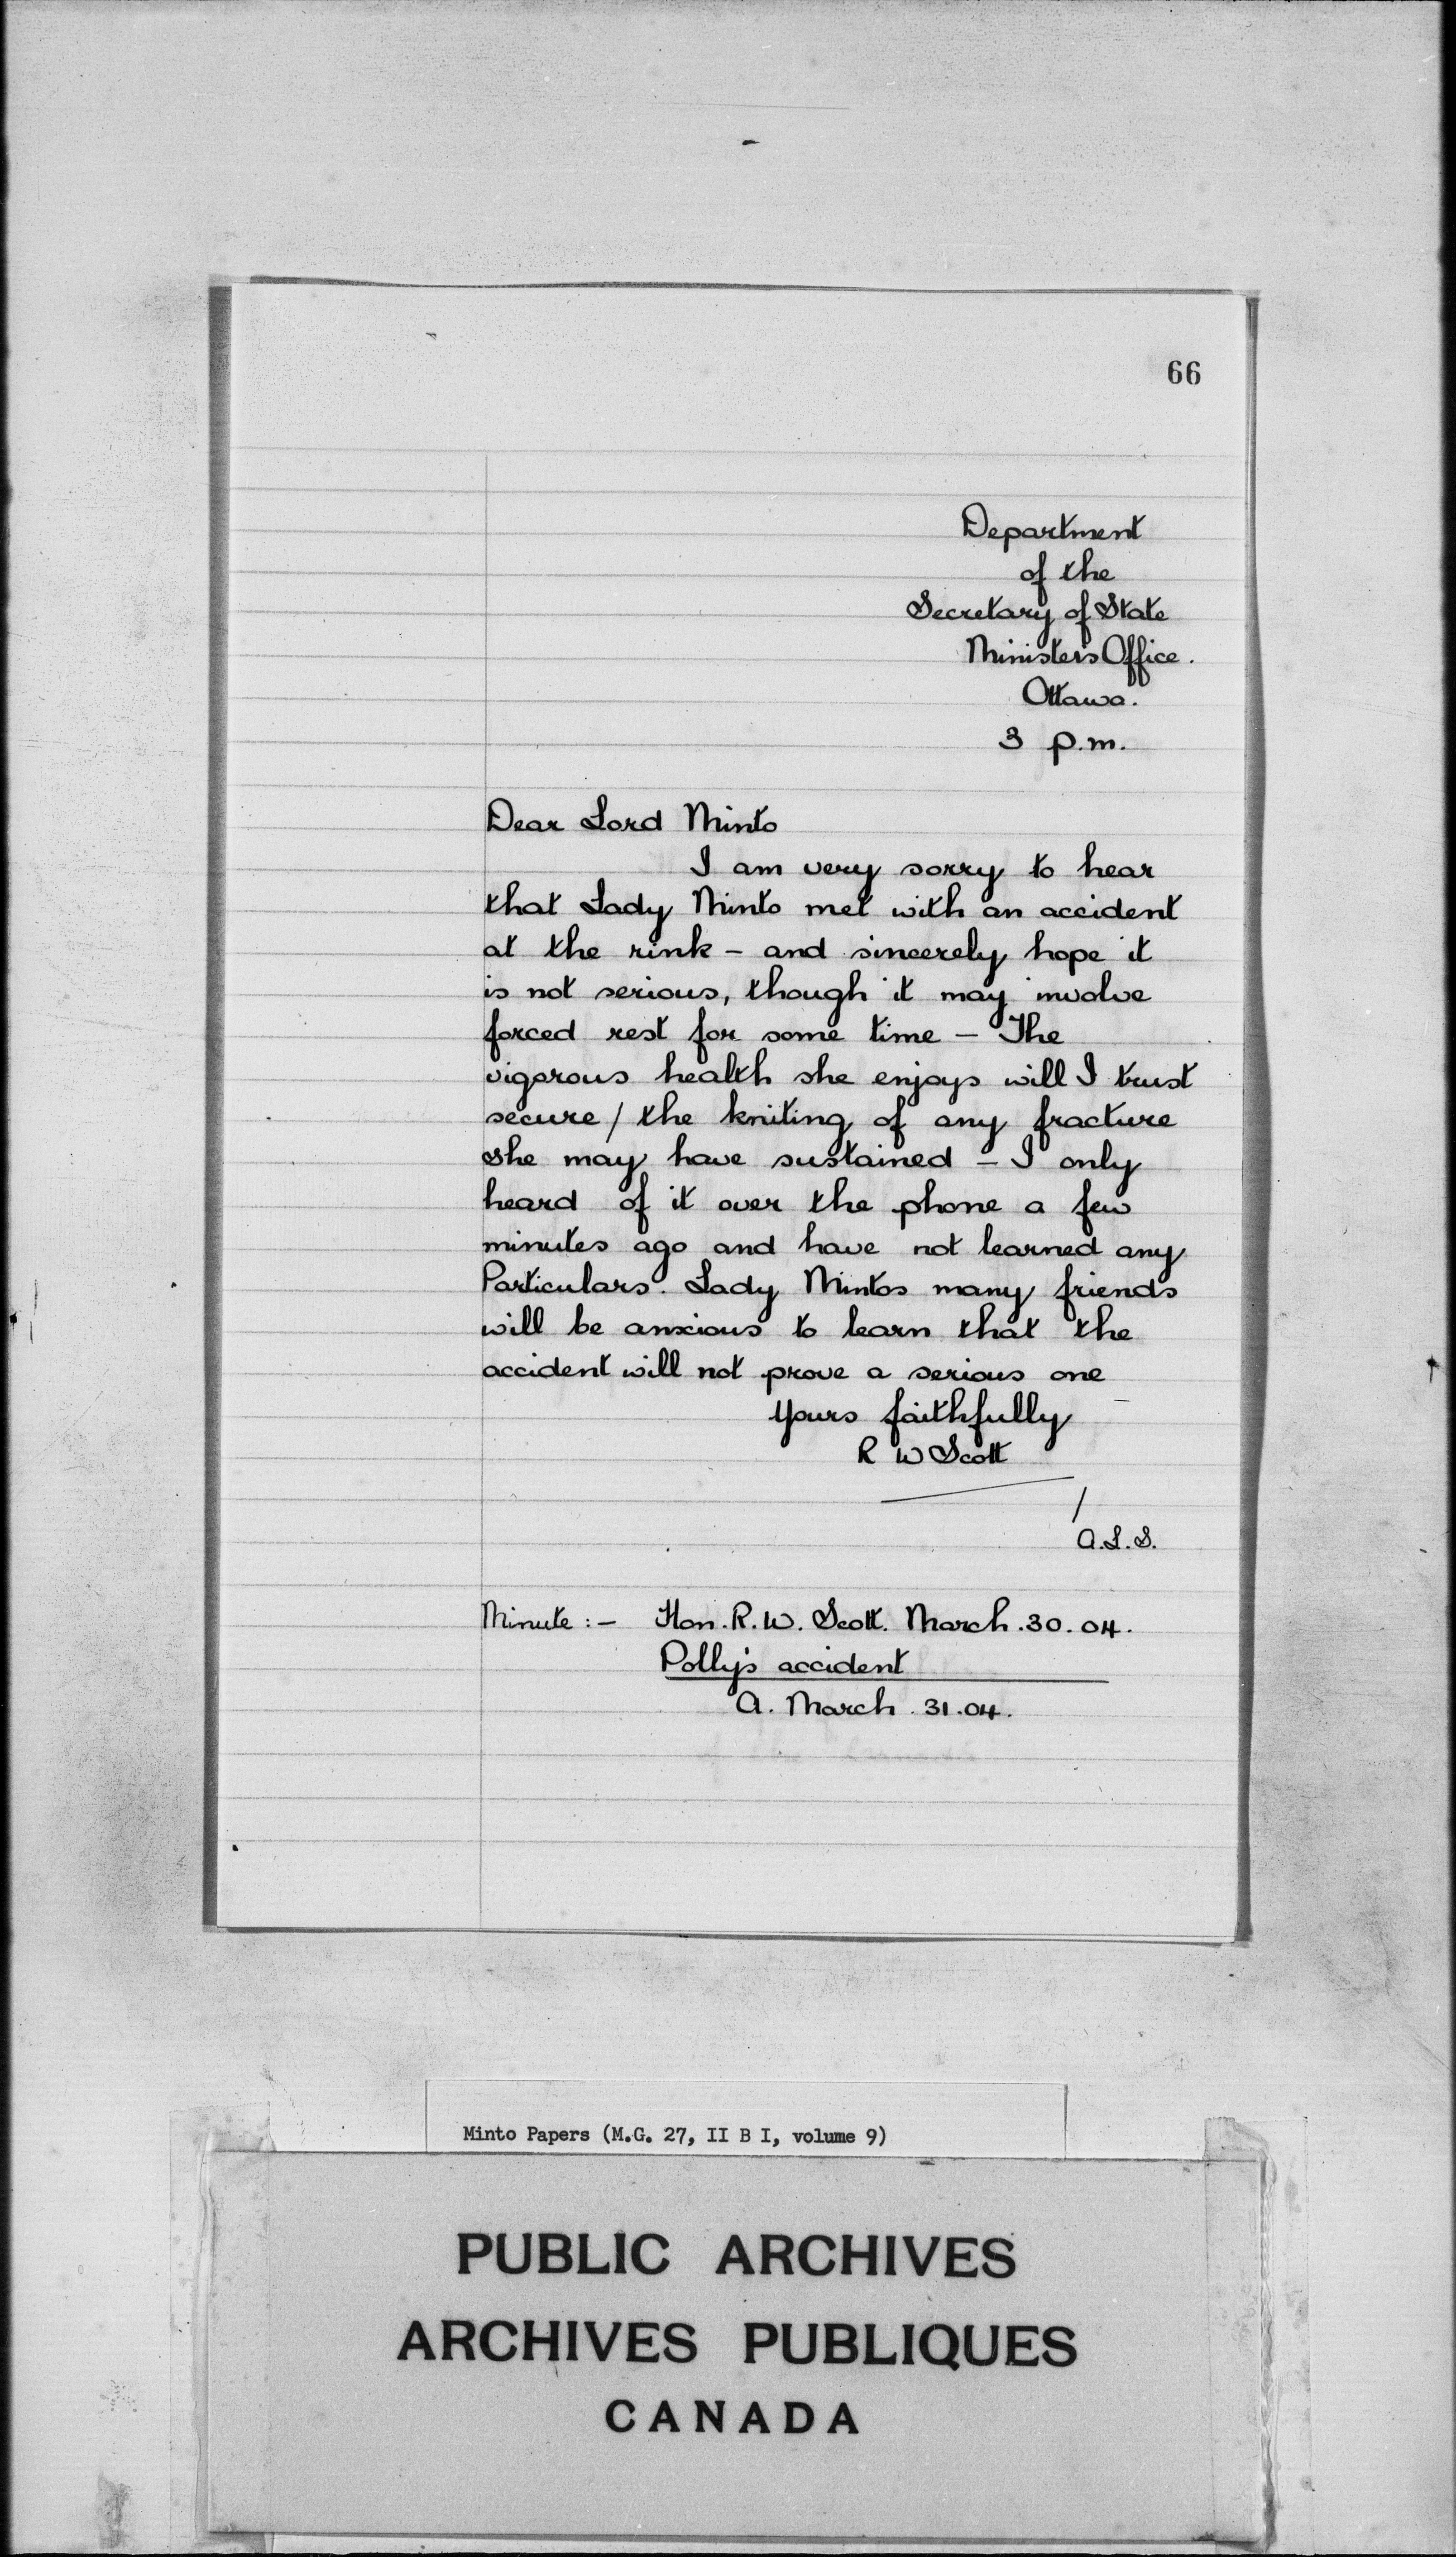 66
Department
of the
Secretary of State
Ministers Office.
Ottawa.
3 p.m.
Dear Lord Minto
I am very sorry to hear
that Lady Minto met with an accident
at the rink – and sincerely hope it
is not serious, though it may involve
forced rest for some time – The
vigorous health she enjoys will I trust
secure / the kniting of any fracture
she may have sustained – I only
heard of it over the phone a few
minutes ago and have not learned any
Particulars. Lady Mintos many friends
will be anxious to learn that the
accident will not prove a serious one
Yours faithfully
R W Scott
/
A.L.S.
Minute :– Hon. R. W. Scott. March. 30. 04.
Polly's accident
A. March. 31. 04.
Minto Papers (M.G. 27, II B I, volume 9)
PUBLIC ARCHIVES
ARCHIVES PUBLIQUES
CANADA